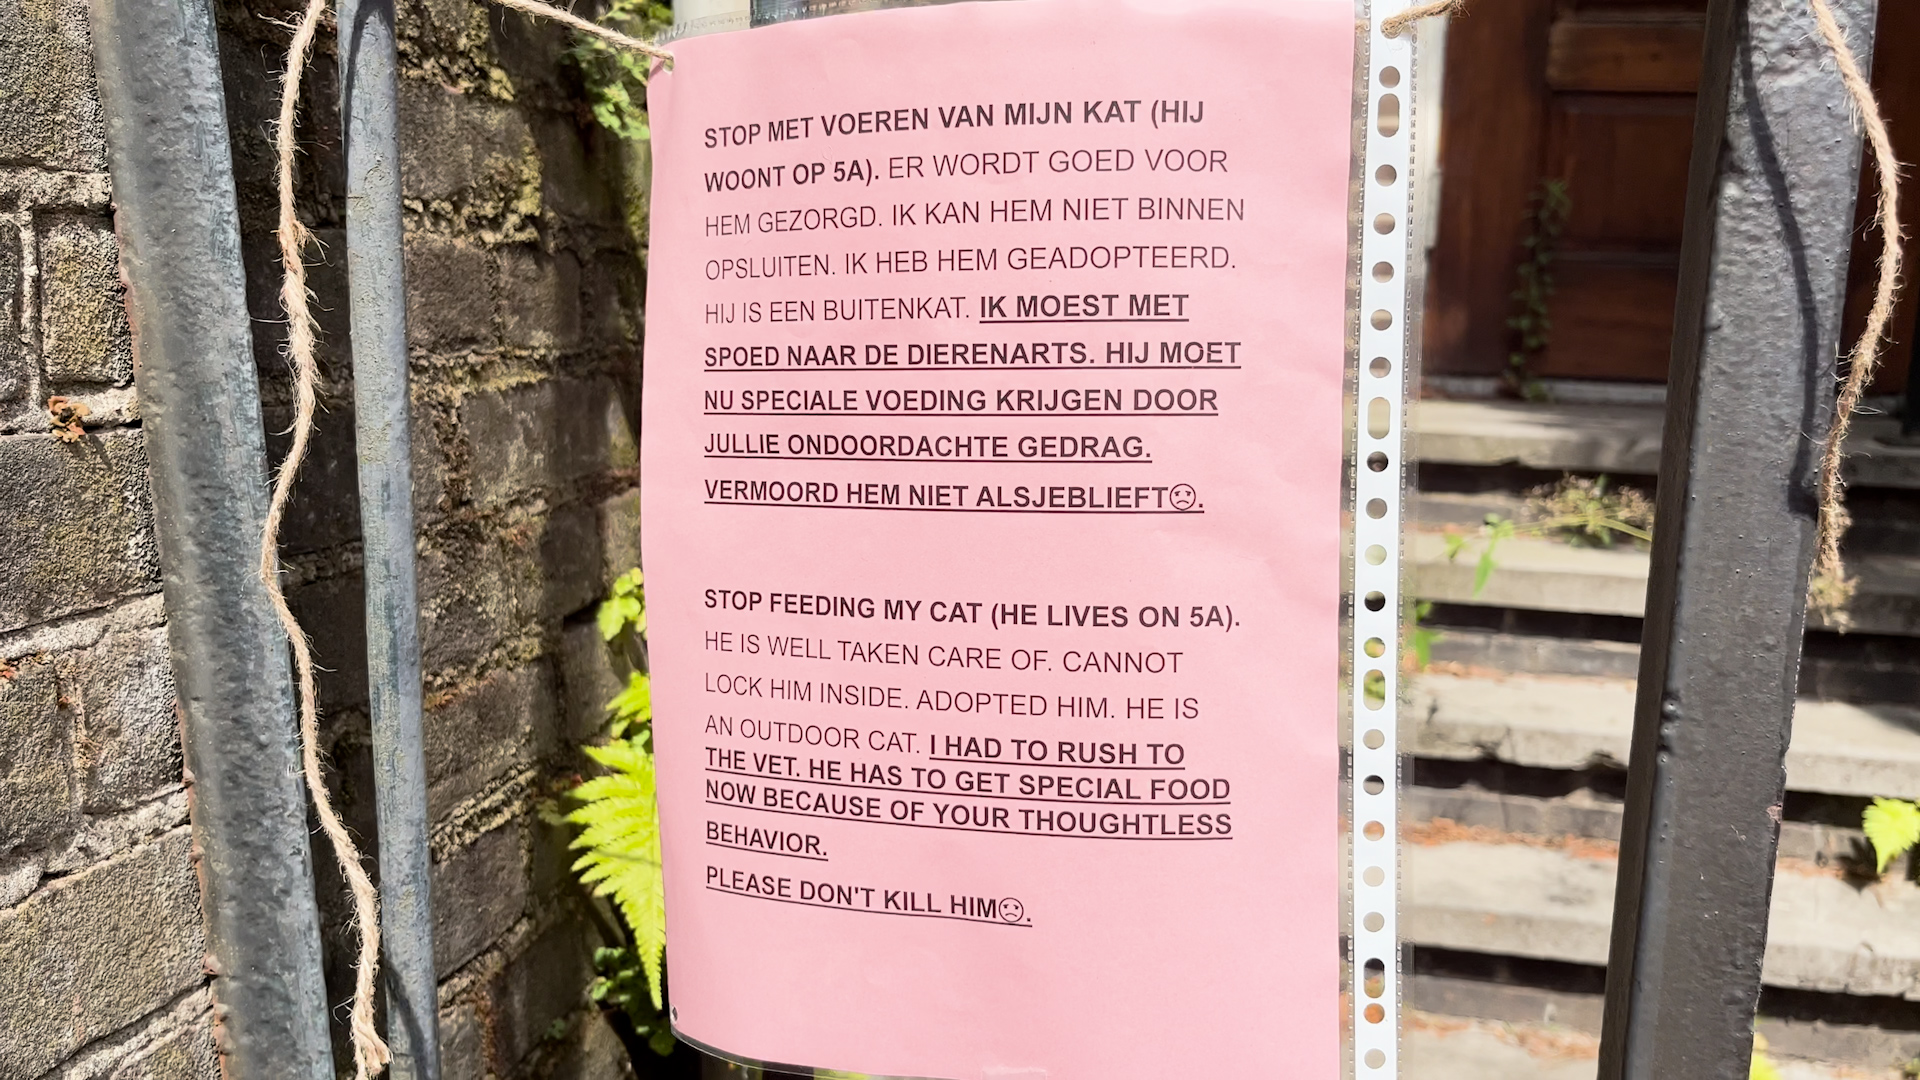 STOP MET VOEREN VAN MIJN KAT (HIJ
WOONT OP 5A). ER WORDT GOED VOOR
HEM GEZORGD. IK KAN HEM NIET BINNEN
OPSLUITEN. IK HEB HEM GEADOPTEERD.
HIJ IS EEN BUITENKAT. IK MOEST MET
SPOED NAAR DE DIERENARTS. HIJ MOET
NU SPECIALE VOEDING KRIJGEN DOOR
JULLIE ONDOORDACHTE GEDRAG.
VERMOORD HEM NIET ALSJEBLIEFT☹.
STOP FEEDING MY CAT (HE LIVES ON 5A).
HE IS WELL TAKEN CARE OF. CANNOT
LOCK HIM INSIDE. ADOPTED HIM. HE IS
AN OUTDOOR CAT. I HAD TO RUSH TO
THE VET. HE HAS TO GET SPECIAL FOOD
NOW BECAUSE OF YOUR THOUGHTLESS
BEHAVIOR.
PLEASE DON'T KILL HIM☹.